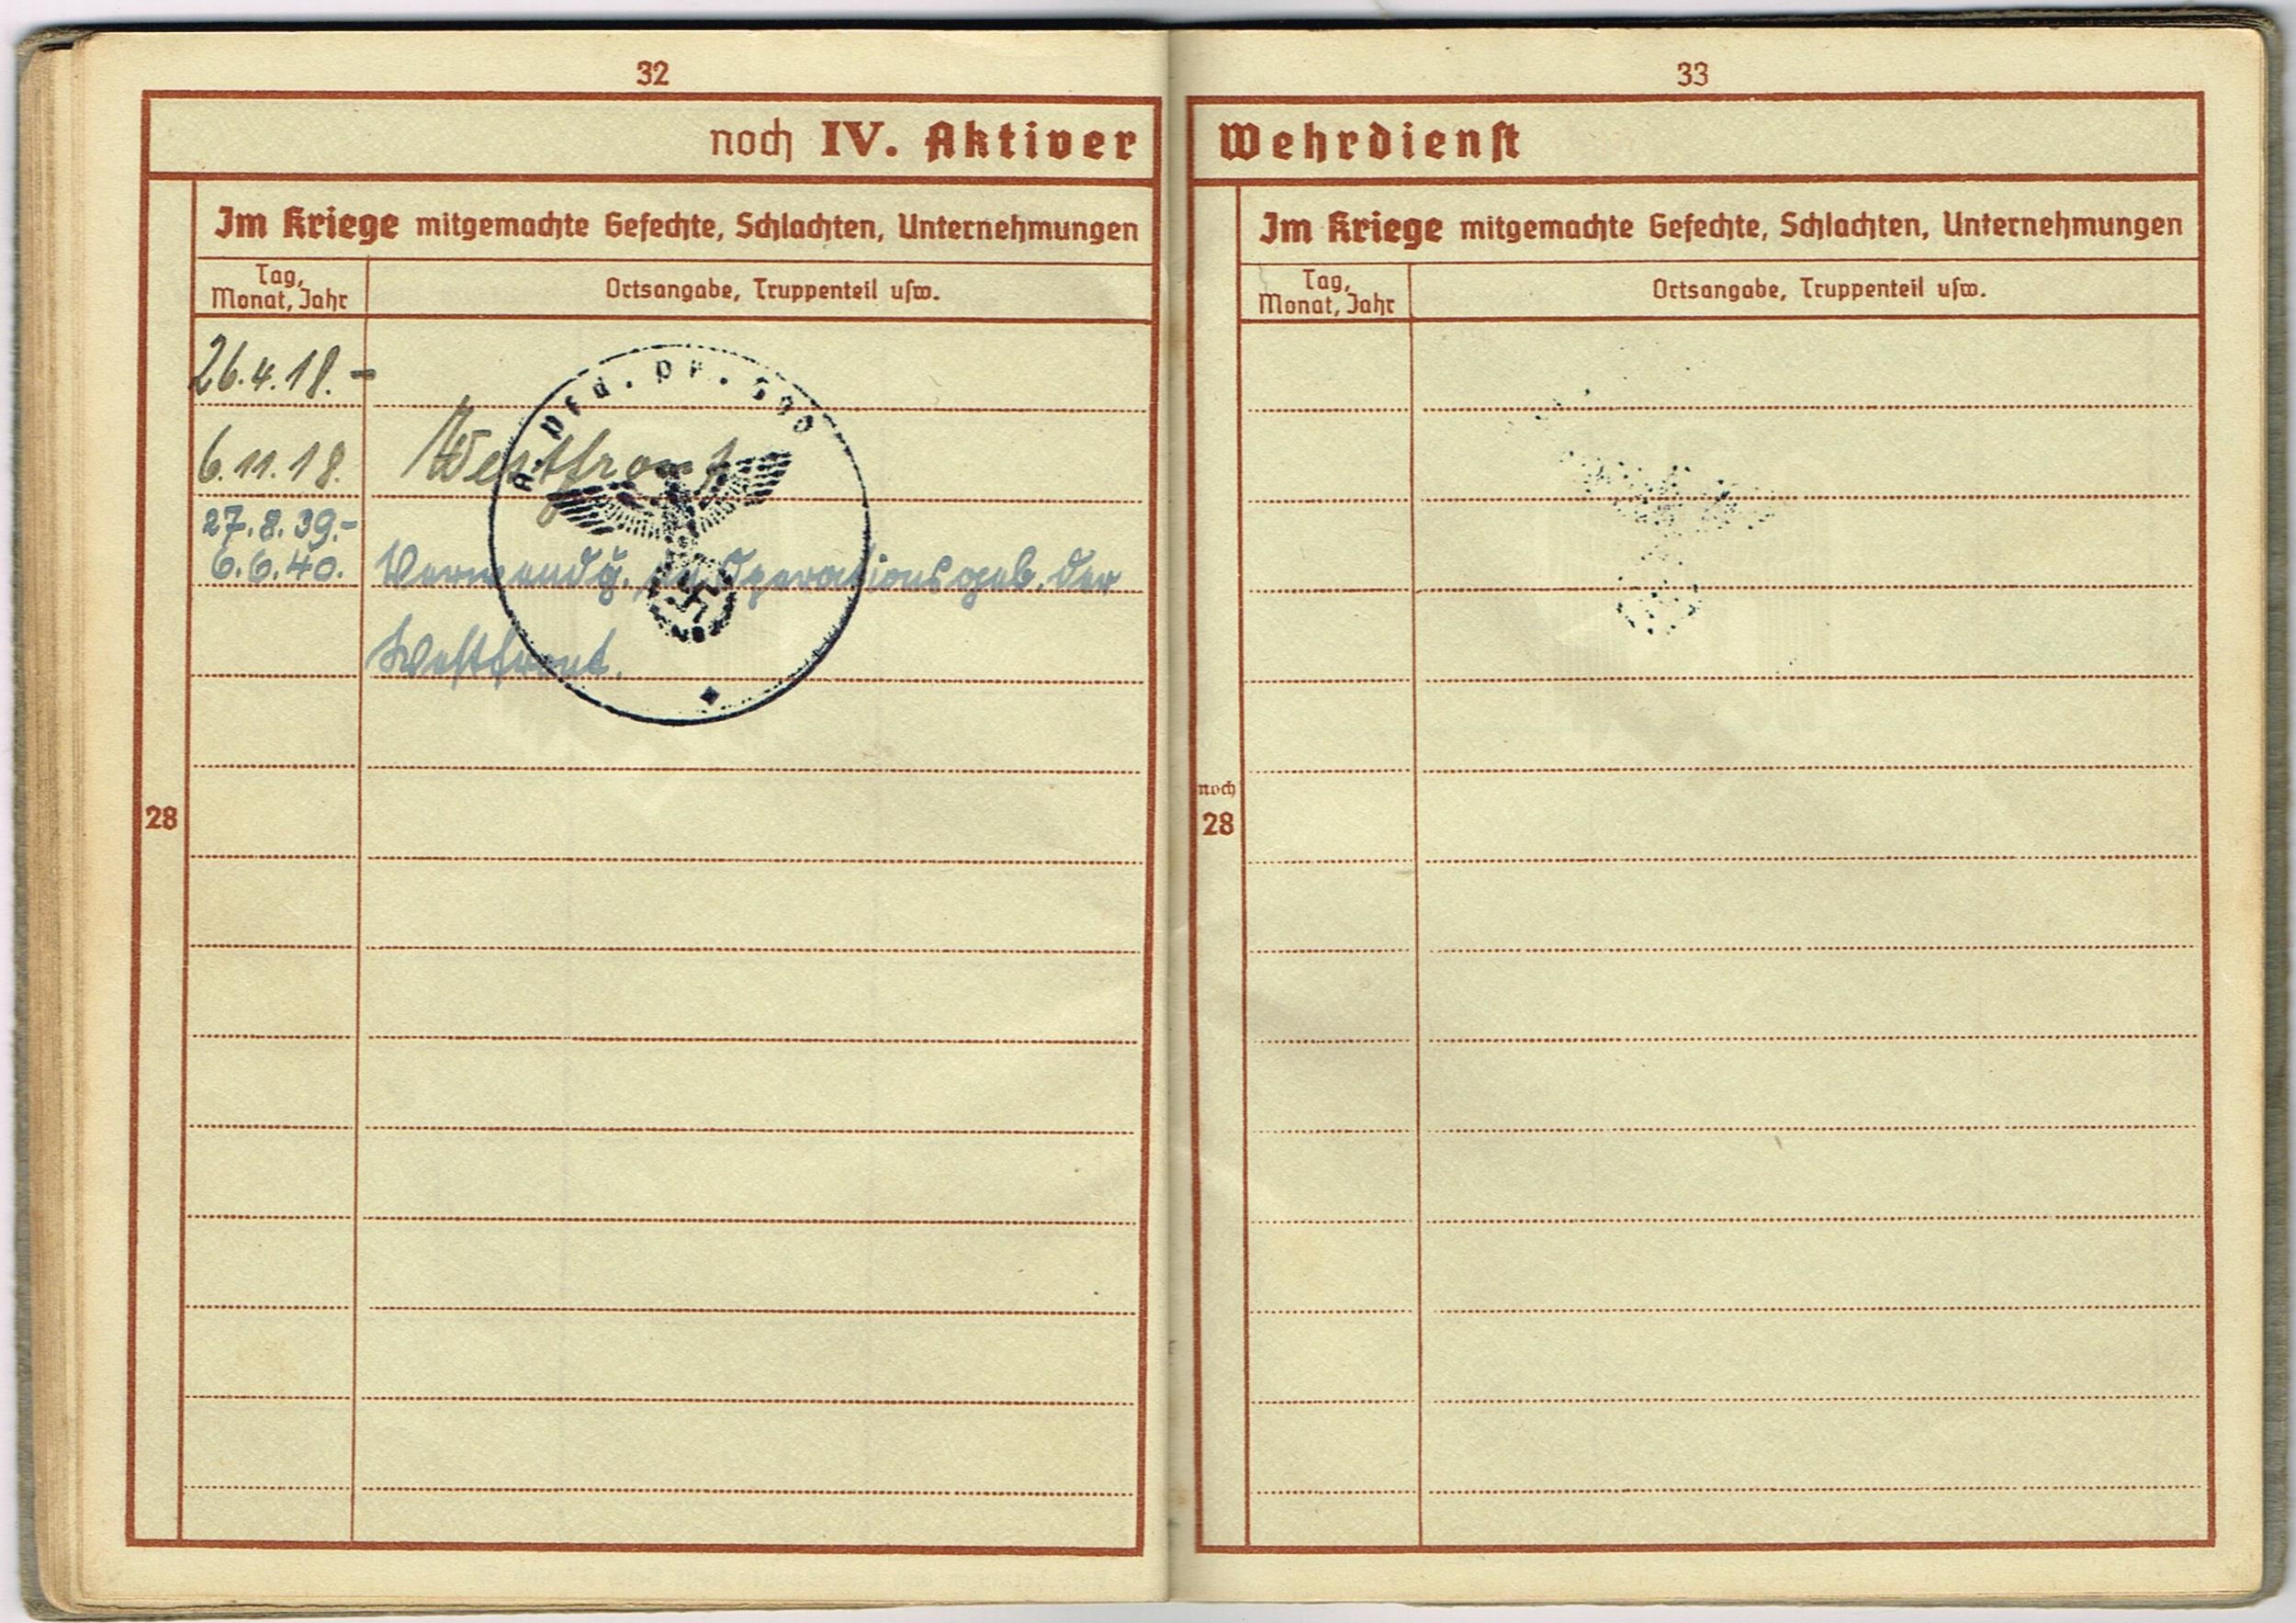 32
noch IV. Aktiver
Im Kriege mitgemachte Gefechte, Schlachten, Unternehmungen
Tag,
Monat, Jahr
Ortsangabe, Truppenteil usw.
26.4.18.-
6.11.18.
Westfront
27.8.39.-
6.6.40.
Verwendg. im Operationsgeb. der
Westfront.
28
33
Wehrdienst
Im Kriege mitgemachte Gefechte, Schlachten, Unternehmungen
Tag,
Monat, Jahr
Ortsangabe, Truppenteil usw.
noch
28